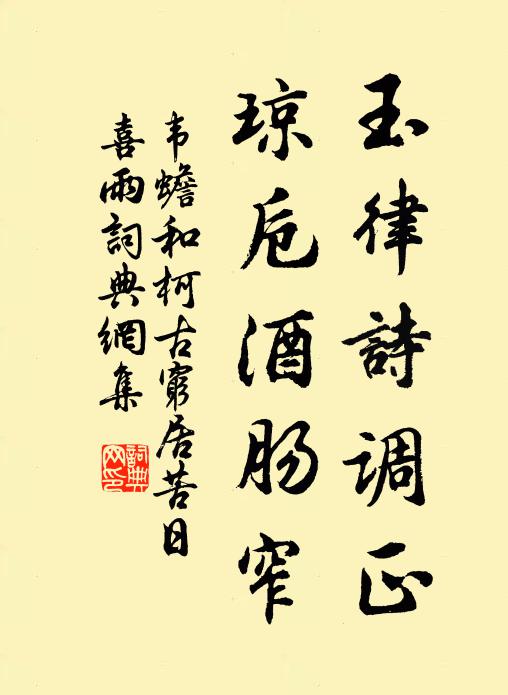 玉律詩调正
琼卮酒肠窄
韦蟾和柯古窮居苦日
喜雨詞典網集
詞典
网印